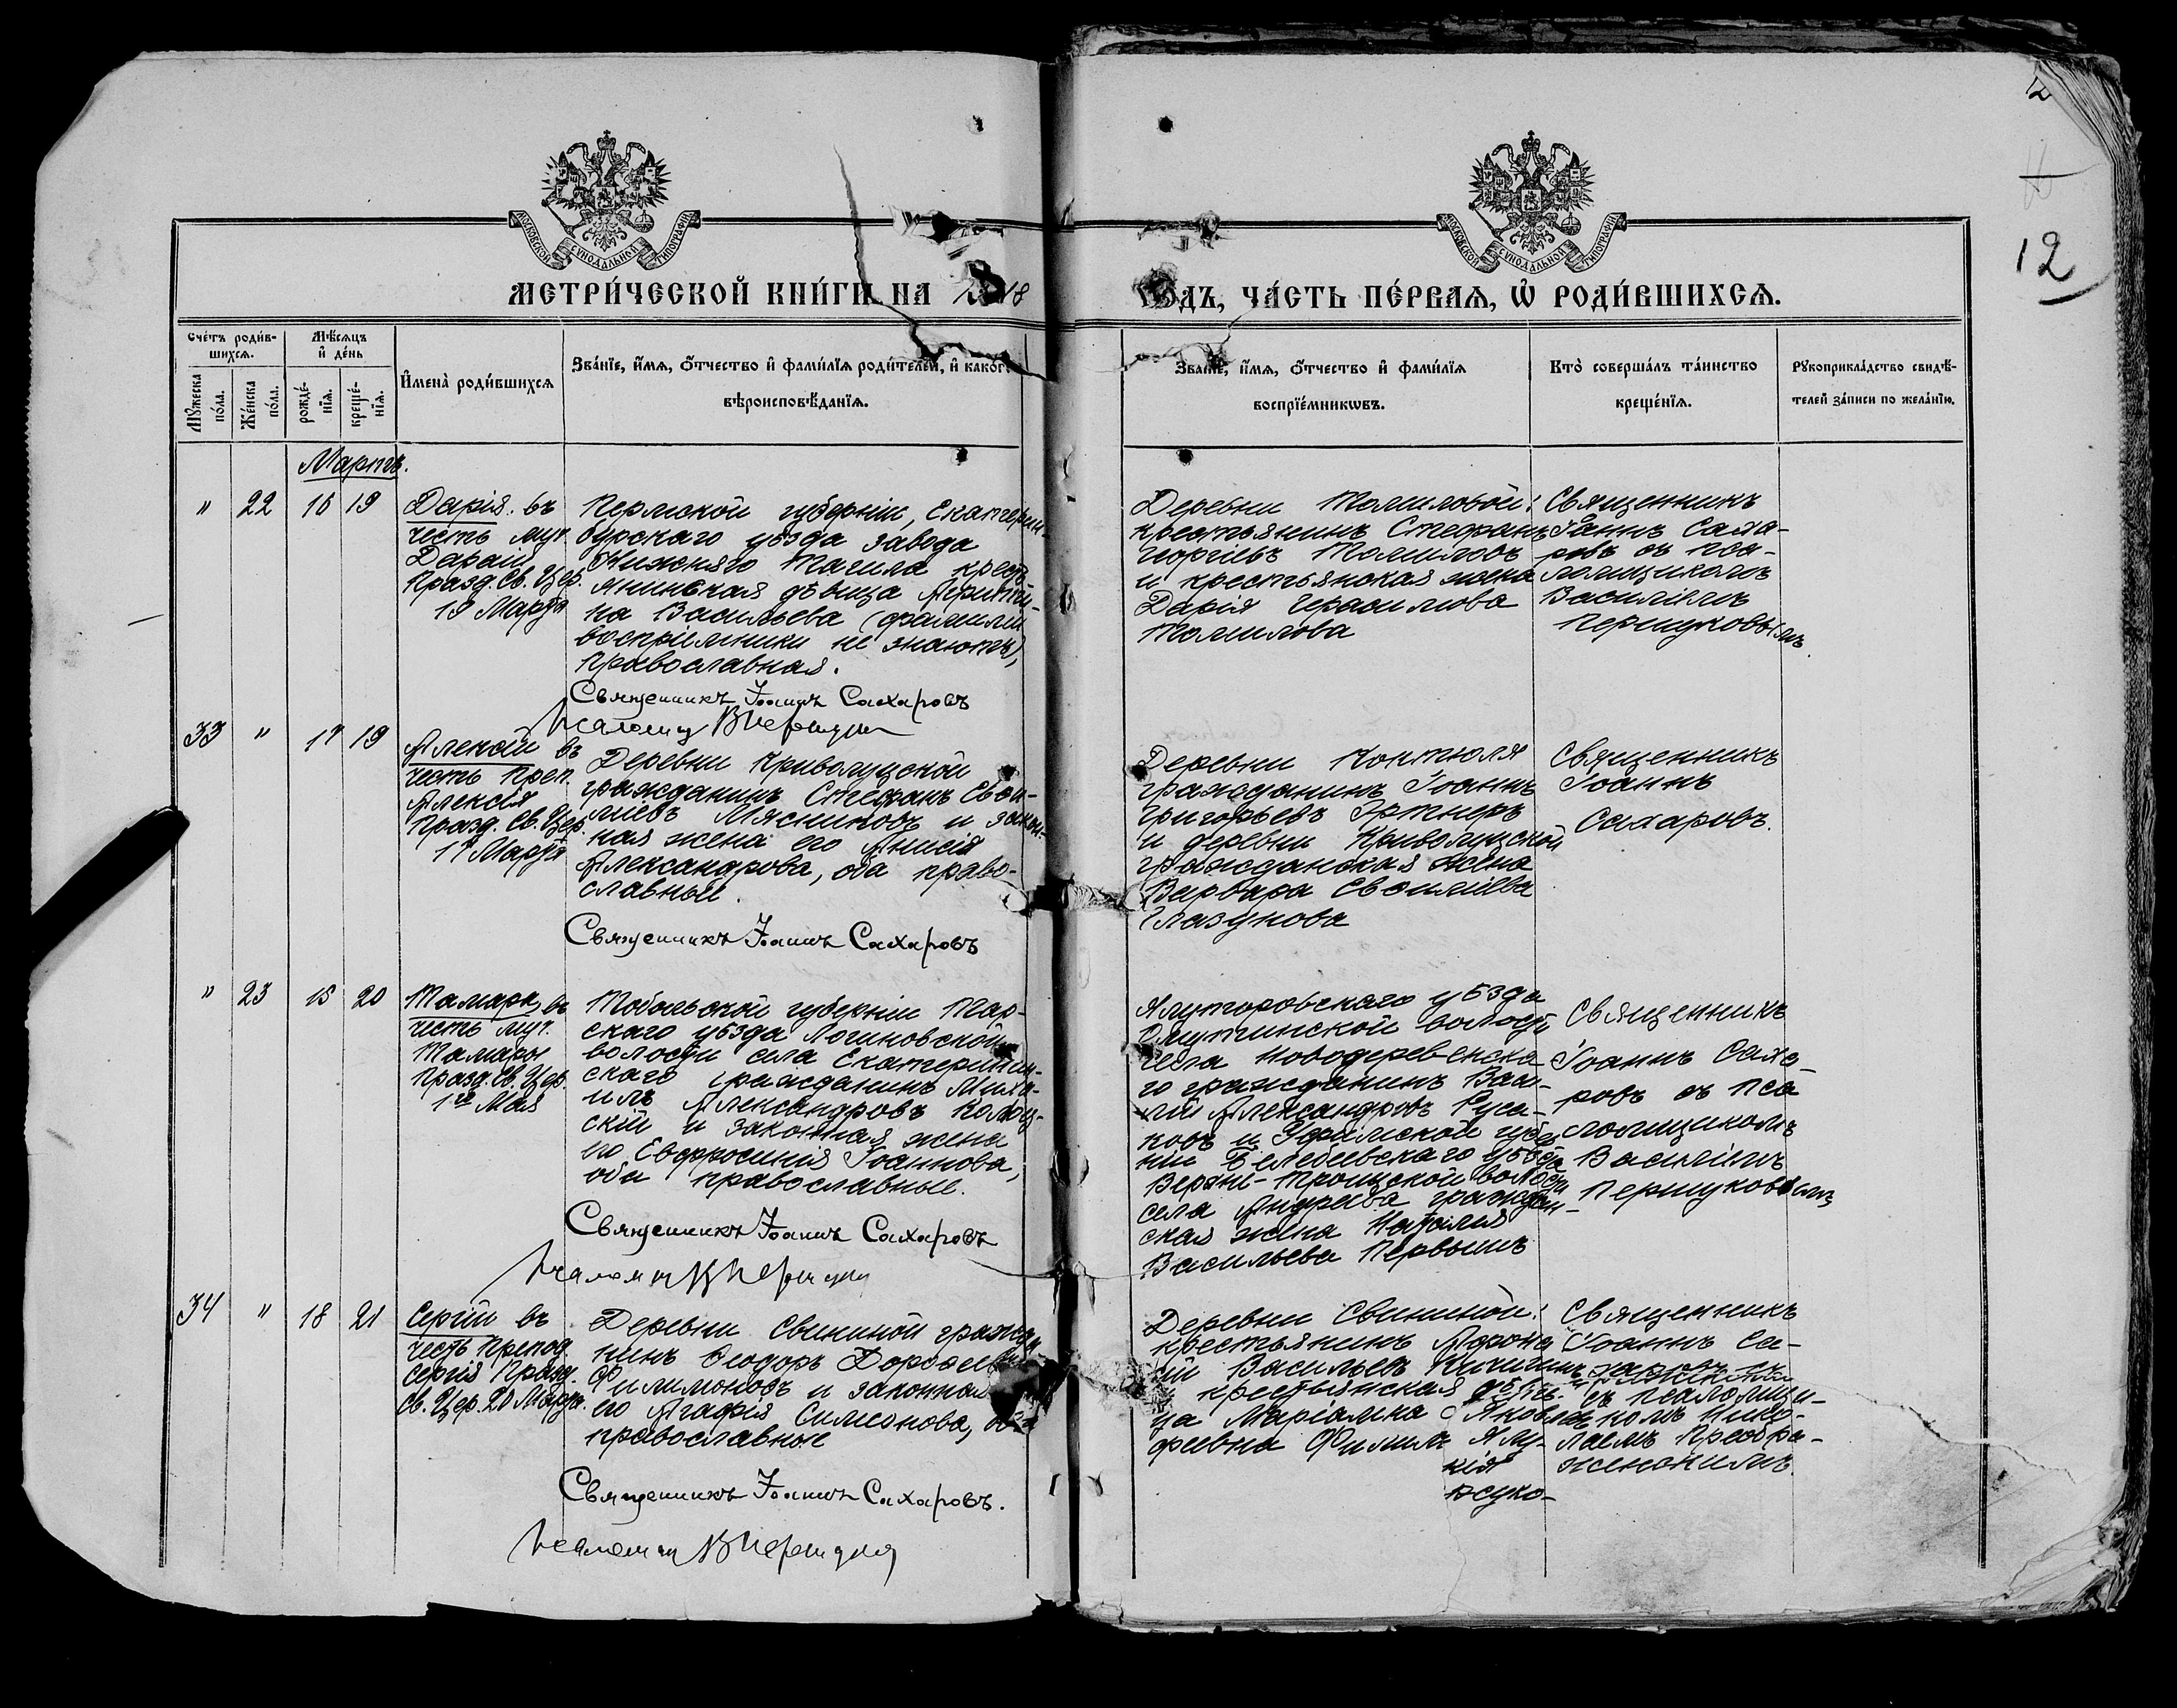 12
МОСКОВСКОЙ СѴНОДАЛЬНОЙ ТИПОГРАФІИ
МОСКОВСКОЙ СѴНОДАЛЬНОЙ ТИПОГРАФІИ
МЕТРИ́ЧЕСКОЙ КНИ́ГИ НА 1918
ГОДЪ, ЧА́СТЬ ПЕ́РВАѦ, Ѽ РОДИ́ВШИХСѦ.
Сче́тъ роди́в-
шихсѧ.
Мѣ́сѧцъ
и҆ де́нь
Мꙋ́жеска
по́ла.
Же́нска
по́ла.
рожде́-
нїѧ.
креще́-
нїѧ.
И҆мена̀ роди́вшихсѧ
Зва́нїе, и҆́мѧ, ѻ҆́тчество и҆ фами́лїѧ роди́телей, и҆ како́гѡ
вѣроисповѣ́данїѧ.
Зва́нїе, и҆́мѧ, ѻ҆́тчество и҆ фами́лїѧ
воспрїе́мникѡвъ.
Кто̀ соверша́лъ та́инство
креще́нїѧ.
Рꙋкоприкла́дство свидѣ́-
телей за́писи по жела́нїю.
Мартъ.
" 22 16 19
Дарія. въ
честь муч.
Даріи
Празд. Св. Цер.
19 Марта
Пермской губерніи, Екатерин-
бургскаго уѣзда завода
Нижняго Тагила кресть-
янинская дѣвица Агриппи-
на Васильева (фамиліи
воспріемники не знаютъ),
православная.
Священникъ Іоаннъ Сахаровъ
Деревни Томиловой:
крестьянинъ Стефанъ
Георгіевъ Томиловъ
и крестьянская жена
Дарія Герасимова
Томилова
Священникъ
Іоаннъ Саха-
ровъ съ пса-
ломщикомъ
Василіемъ
Першуковымъ.
33 " 17 19
Алексій въ
честь Преп.
Алексія
Празд. Св. Цер.
17 Марта
Деревни Криволуцкой
гражданинъ Стефанъ Евси-
гніевъ Мясниковъ и закон-
ная жена его Анисія
Александрова, оба право-
славные.
Священникъ Іоаннъ Сахаровъ
Деревни Коктюля
гражданинъ Іоаннъ
Григорьевъ Эртнеръ
и деревни Криволуцкой
гражданская жена
Варвара
Глазунова
Священникъ
Іоаннъ
Сахаровъ.
" 23 15 20
Тамара, въ
честь муч.
Тамары
Празд. Св. Цер.
1го Мая
Тобольской губерніи Тар-
скаго уѣзда Логиновской
волости села Екатеринин-
скаго гражданинъ Миха-
илъ Александровъ
и законная жена
его Евфросинія Іоаннова,
оба православные.
Священникъ Іоаннъ Сахаровъ
Ялуторовскаго уѣзда
Омутинской волости
села Новодеревенска-
го гражданинъ Васи-
лій Александровъ Руса-
ковъ и Уфимской губер-
ніи Белебеевскаго уѣзда
Верхне-Троицкой волости
села Андреева граждан-
ская жена Наталія
Васильева Первышъ
Священникъ
Іоаннъ Саха-
ровъ съ пса-
ломщикомъ
Василіемъ
Першуковымъ
34 " 18 21
Сергій въ
честь Препод.
Сергія Празд.
Св. Цер. 20 Марта.
Деревни Свининой гражда-
нинъ Ѳеодоръ Дорофеевъ
Филимоновъ и законная
его Агафія Симеонова, оба
православные
Священникъ Іоаннъ Сахаровъ.
Деревни Свининой:
крестьянинъ
Васильевъ Кичигинъ
крестьянская дѣви-
ца Маріамна
Священникъ
Іоаннъ Са-
съ псаломщи-
комъ Нико-
лаемъ Преобра-
женскимъ.